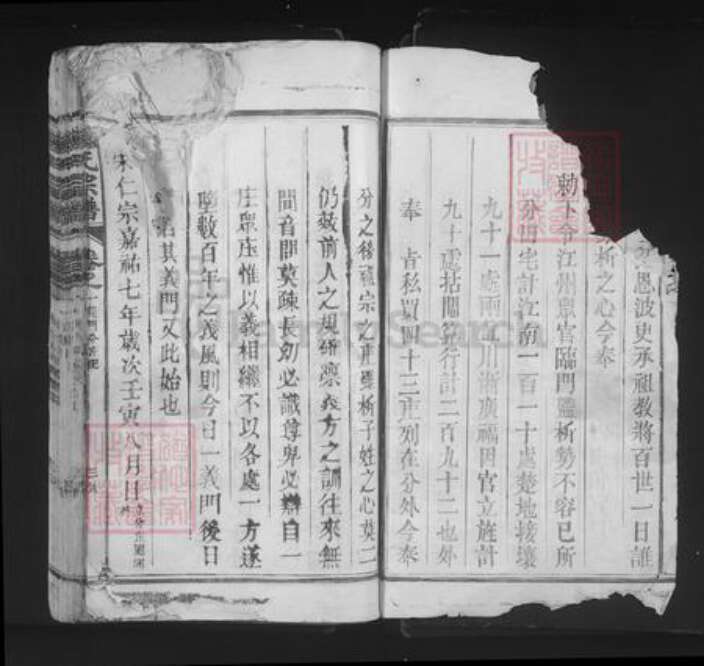 恩波史承祖教將百世一日誰
析之心今奉
勑下令江州眾官臨門監析勢不容已所
分田宅計江南一百一十處楚地接壤
九十一處兩江川浙廣福因官立旌計
九十處拈鬮另行計二百九十二也外
奉 旨私買四十三庄列在分外今奉
分之後雖宗之庄雖析子姓之心莫二
仍效前人之規研藥義方之訓往來無
間音問莫疎長幼必識尊卑必辦自一
庄眾庄惟以義相繼不以各處一方遂
墜數百年之義風則今日一義門後日
其義門又此始也
宋仁宗嘉祐七年歲次壬寅八月日
氏宗譜